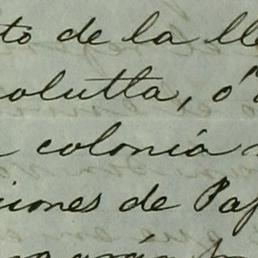 to de la lle
olutla, ó
colonia
iones de Pap